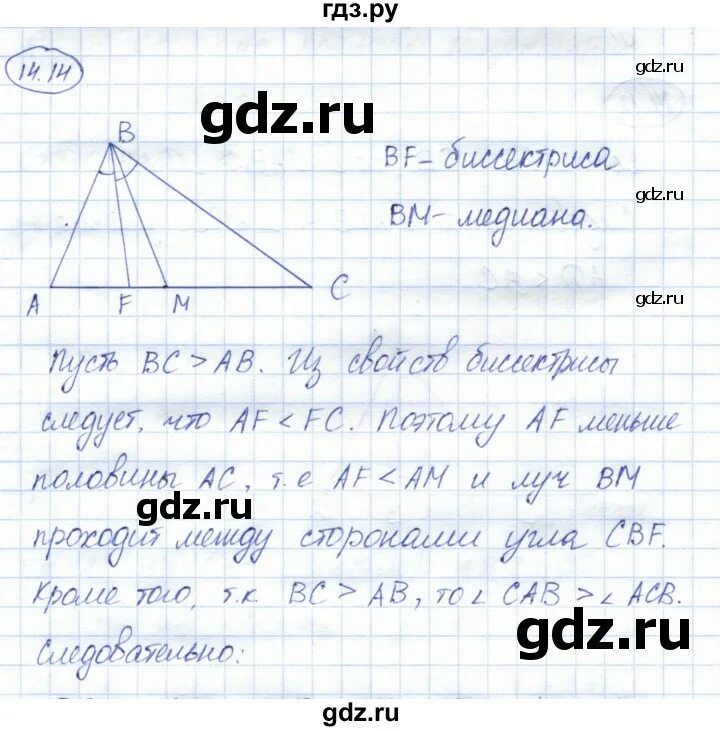 гдз.ру
14.14
gdz.ru
gdz.ru
B
BF - биссектриса
gdz.ru
BM - медиана.
A F M C
gdz.ru
Пусть BC > AB. Из свойств биссектрисы
следует, что AF < FC. Поэтому AF меньше
половины AC, т.е AF < AM и луч BM
gdz.ru
проходит между сторонами угла CBF.
Кроме того, т.к BC > AB, то ∠ CAB > ∠ ACB.
gdz.ru
Следовательно:
gdz.ru